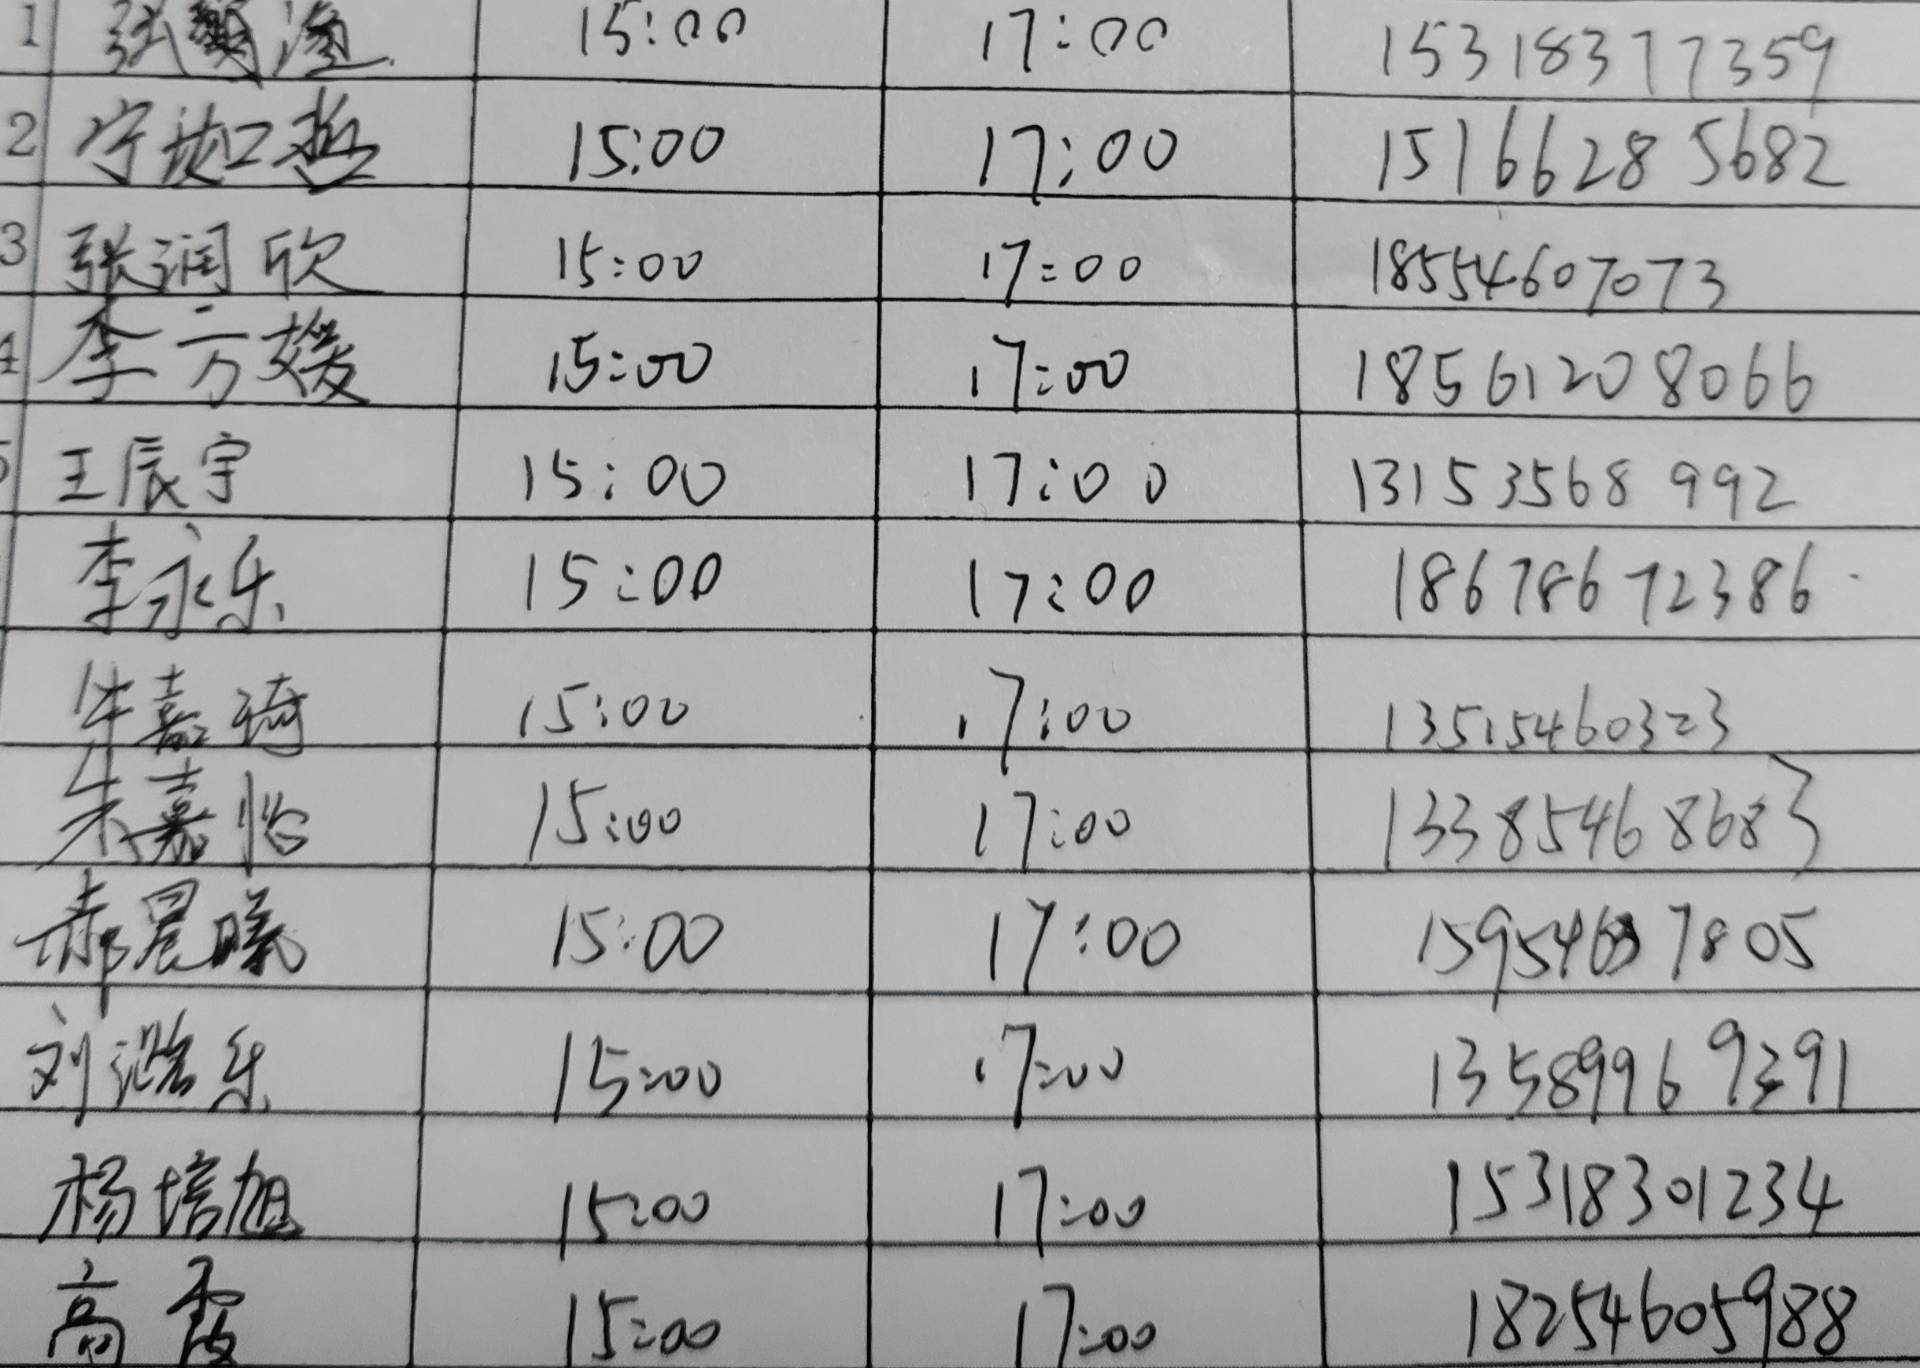 1 张 滢 15:00 17:00 15318377359
2 宁 哲 15:00 17:00 15166285682
3 张润欣 15:00 17:00 18554607073
4 李方媛 15:00 17:00 18561208066
5 王辰宇 15:00 17:00 13153568992
李永乐 15:00 17:00 18678672386
牛嘉琦 15:00 17:00 13515460323
朱嘉怡 15:00 17:00 13385468683
郝晨曦 15:00 17:00
刘浩乐 15:00 17:00 13589969391
杨培旭 15:00 17:00 15318301234
高霞 15:00 17:00 18254605988